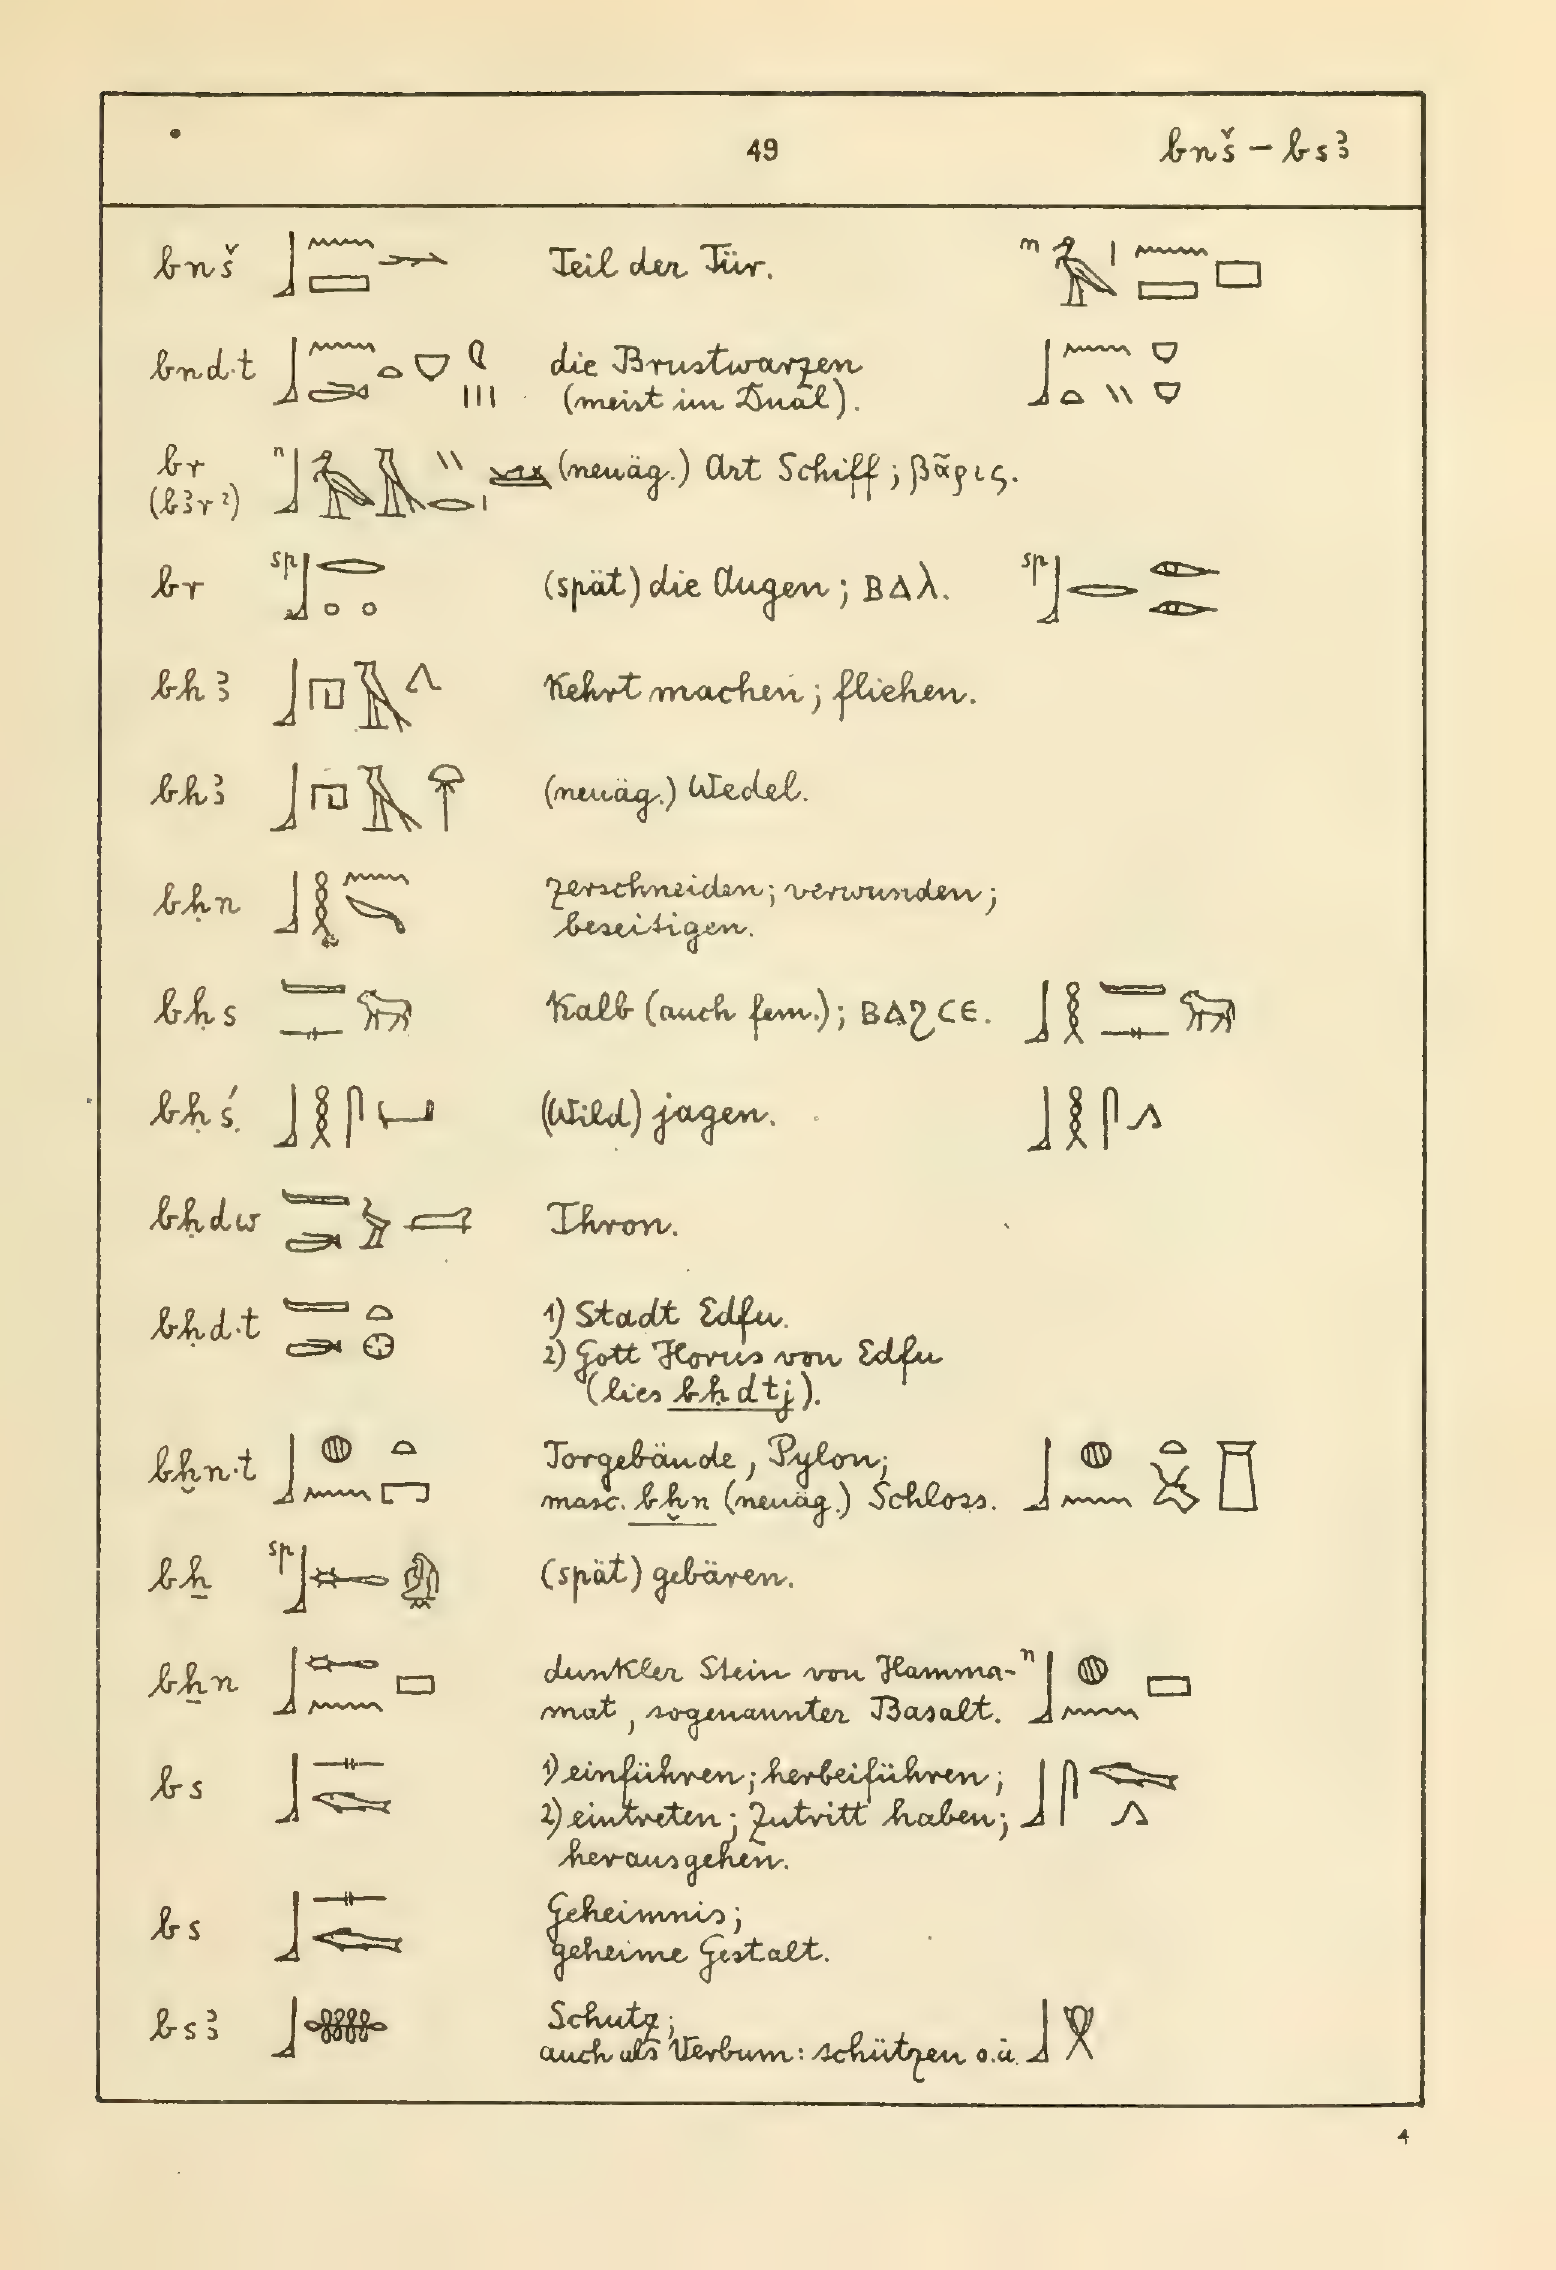 49 bnš – bsꜣ
bnš Teil der Tür. n
bnd·t die Brustwarzen
(meist im Dual).
br n (neuäg.) Art Schiff; βᾶρις.
(bꜣr?)
br sp (spät) die Augen; ⲃⲁⲗ. sp
bhꜣ Kehrt machen; fliehen.
bhꜣ (neuäg.) Wedel.
bḥn zerschneiden; verwunden;
beseitigen.
bḥs Kalb (auch fem.); ⲃⲁϩⲥⲉ.
bḥś (Wild) jagen.
bḥdw Thron.
bḥd·t 1) Stadt Edfu.
2) Gott Horus von Edfu
(lies bḥdtj).
bḫn·t Torgebäude, Pylon;
masc. bḫn (neuäg.) Schloss.
bẖ sp (spät) gebären.
bẖn dunkler Stein von Hamma- n
mat, sogenannter Basalt.
bs 1) einführen; herbeiführen;
2) eintreten; Zutritt haben;
herausgehen.
bs Geheimnis;
geheime Gestalt.
bsꜣ Schutz;
auch als Verbum: schützen o.ä.
4